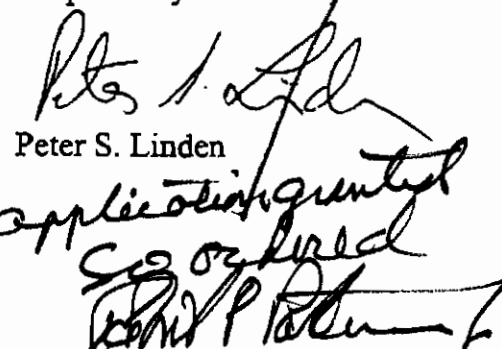 Peter S. Linden
Peter S. Linden
application granted
so ordered
Robert P Patterson J